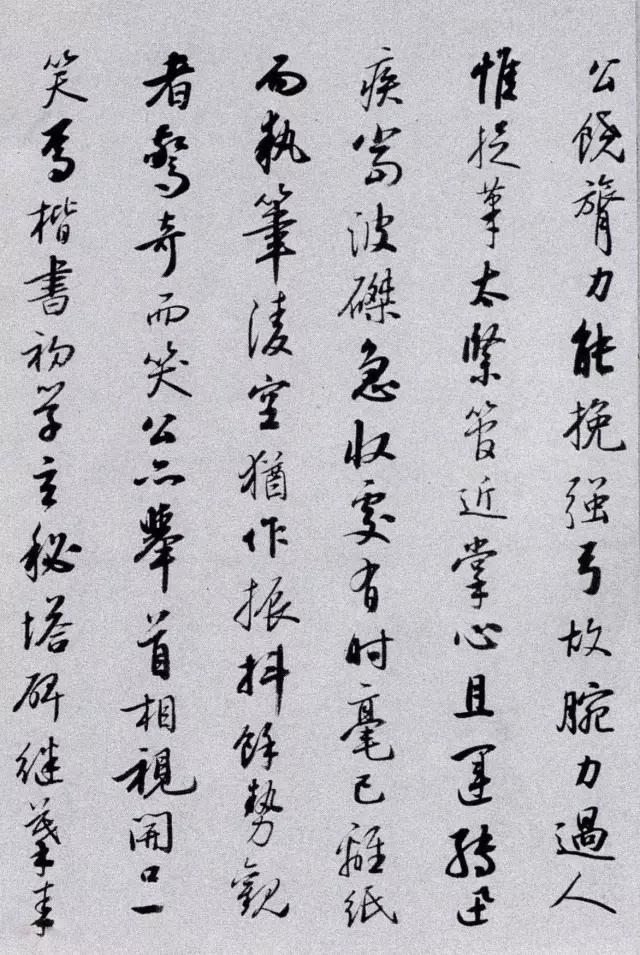 公饒膂力能挽强弓故腕力過人
惟捉筆太緊管近掌心且運轉迅
疾當波磔急收處有时毫已離紙
而執筆淩空猶作振抖餘勢觀
者驚奇而笑公亦舉首相視開口一
笑焉楷書初学玄秘塔碑继摹